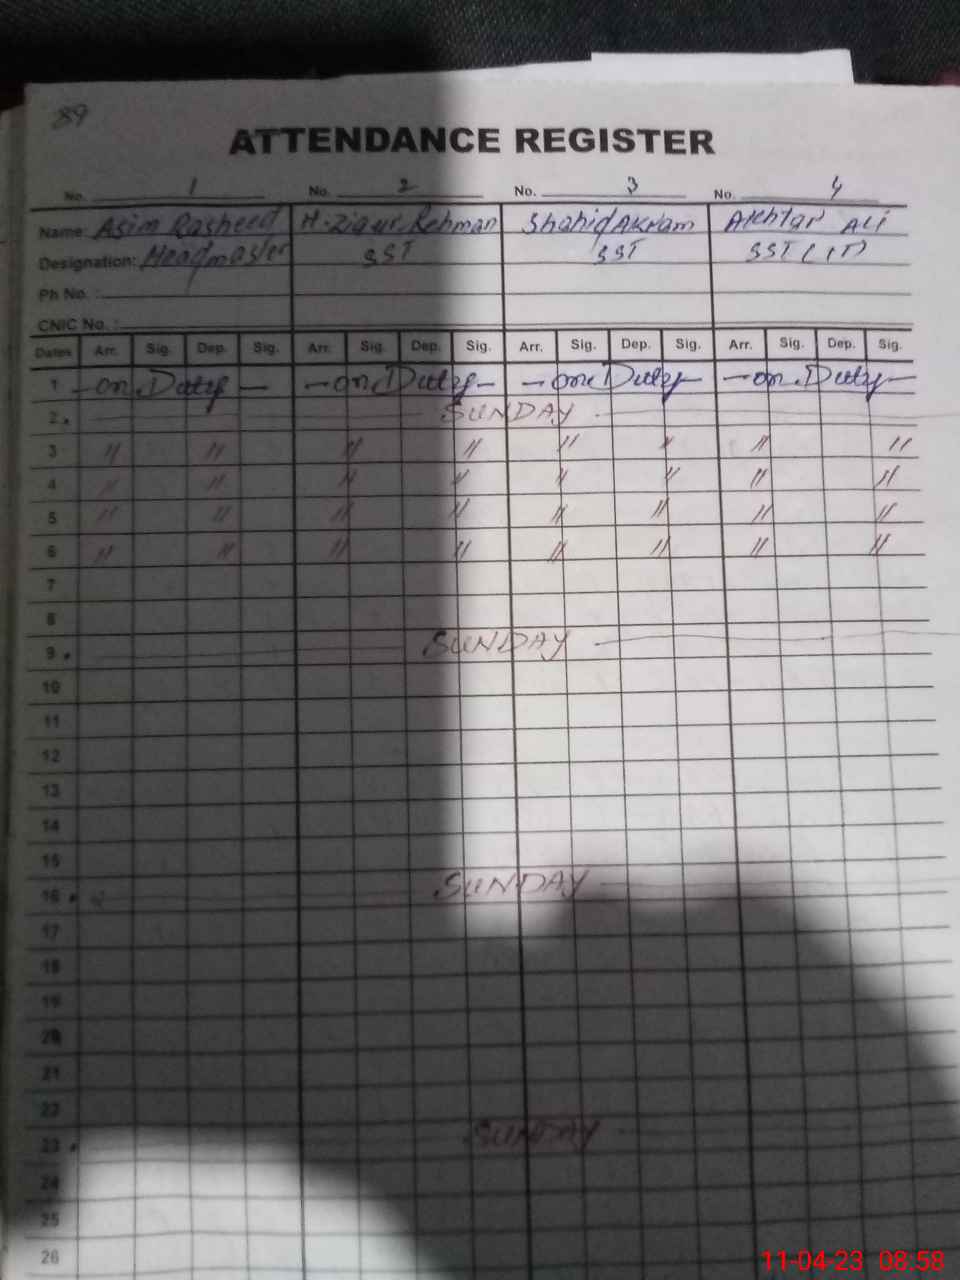 89
ATTENDANCE REGISTER
No. 1 No. 2 No. 3 No. 4
Name: Asim Rasheed H. Ziaur Rehman Shahid Akram Akhtar Ali
Designation: Headmaster SST SST SST (IT)
Ph No. :
CNIC No. :
Dates Arr. Sig. Dep. Sig. Arr. Sig. Dep. Sig. Arr. Sig. Dep. Sig. Arr. Sig. Dep. Sig.
1 - on Duty - - on Duty - - on Duty - - on Duty -
2. SUNDAY
3 〃 〃 〃 〃 〃 〃 〃 〃
4 〃 〃 〃 〃 〃 〃 〃 〃
5 〃 〃 〃 〃 〃 〃 〃 〃
6 〃 〃 〃 〃 〃 〃 〃 〃
7
8
9. SUNDAY
10
11
12
13
14
15
16. SUNDAY
17
18
19
20
21
22
23. SUNDAY
24
25
26
11-04-23 08:58